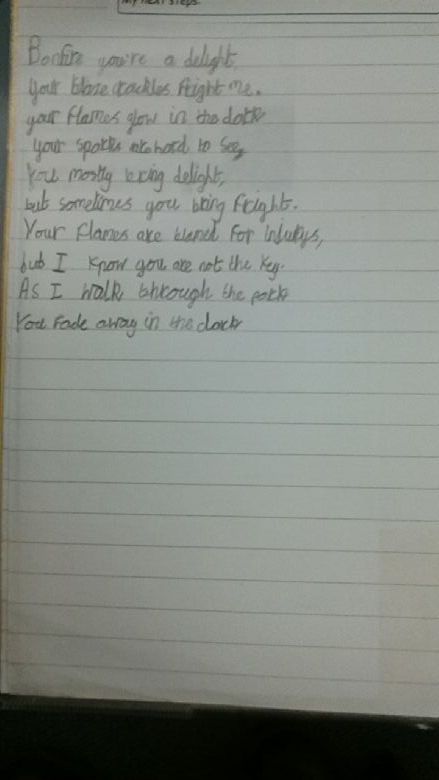 My next steps
Bonfire you're a delight
Your blaze crackles fright me.
your flames glow in the dark
your sparks are hard to see,
You mostly bring delight,
but sometimes you bring fright.
Your flames are blamed for injurys,
but I know you are not the key.
As I walk through the park
You fade away in the dark